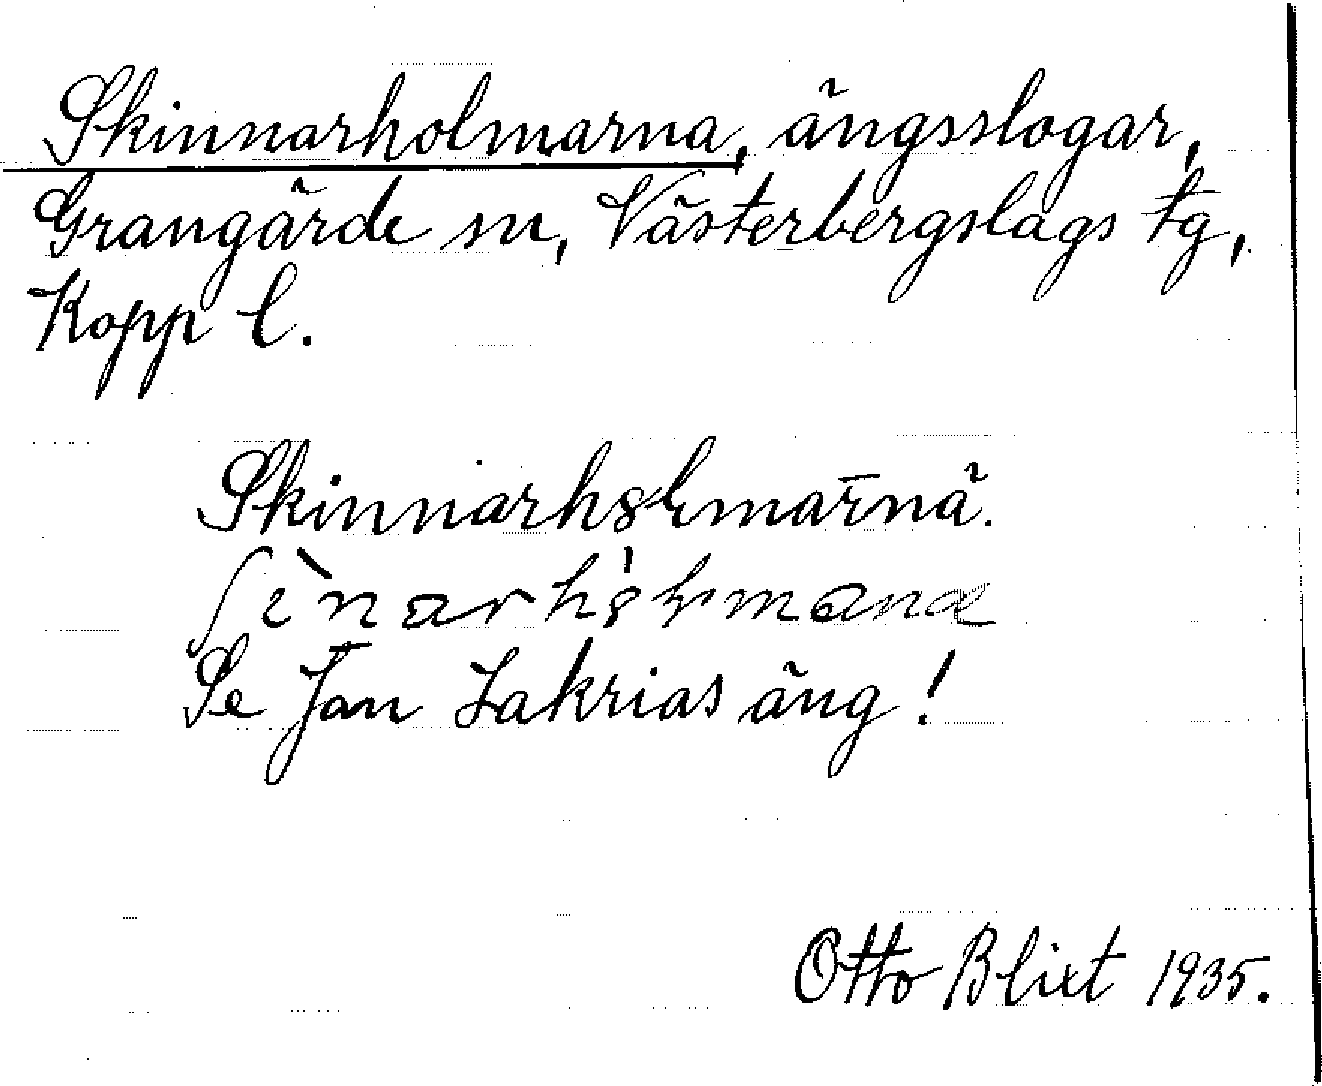 Skinnarholmarna, ängsslogar,
Grangärde sn, Västerbergslags tg,
Kopp l.
Se Jan Zakrias äng!
Otto Blixt 1935.